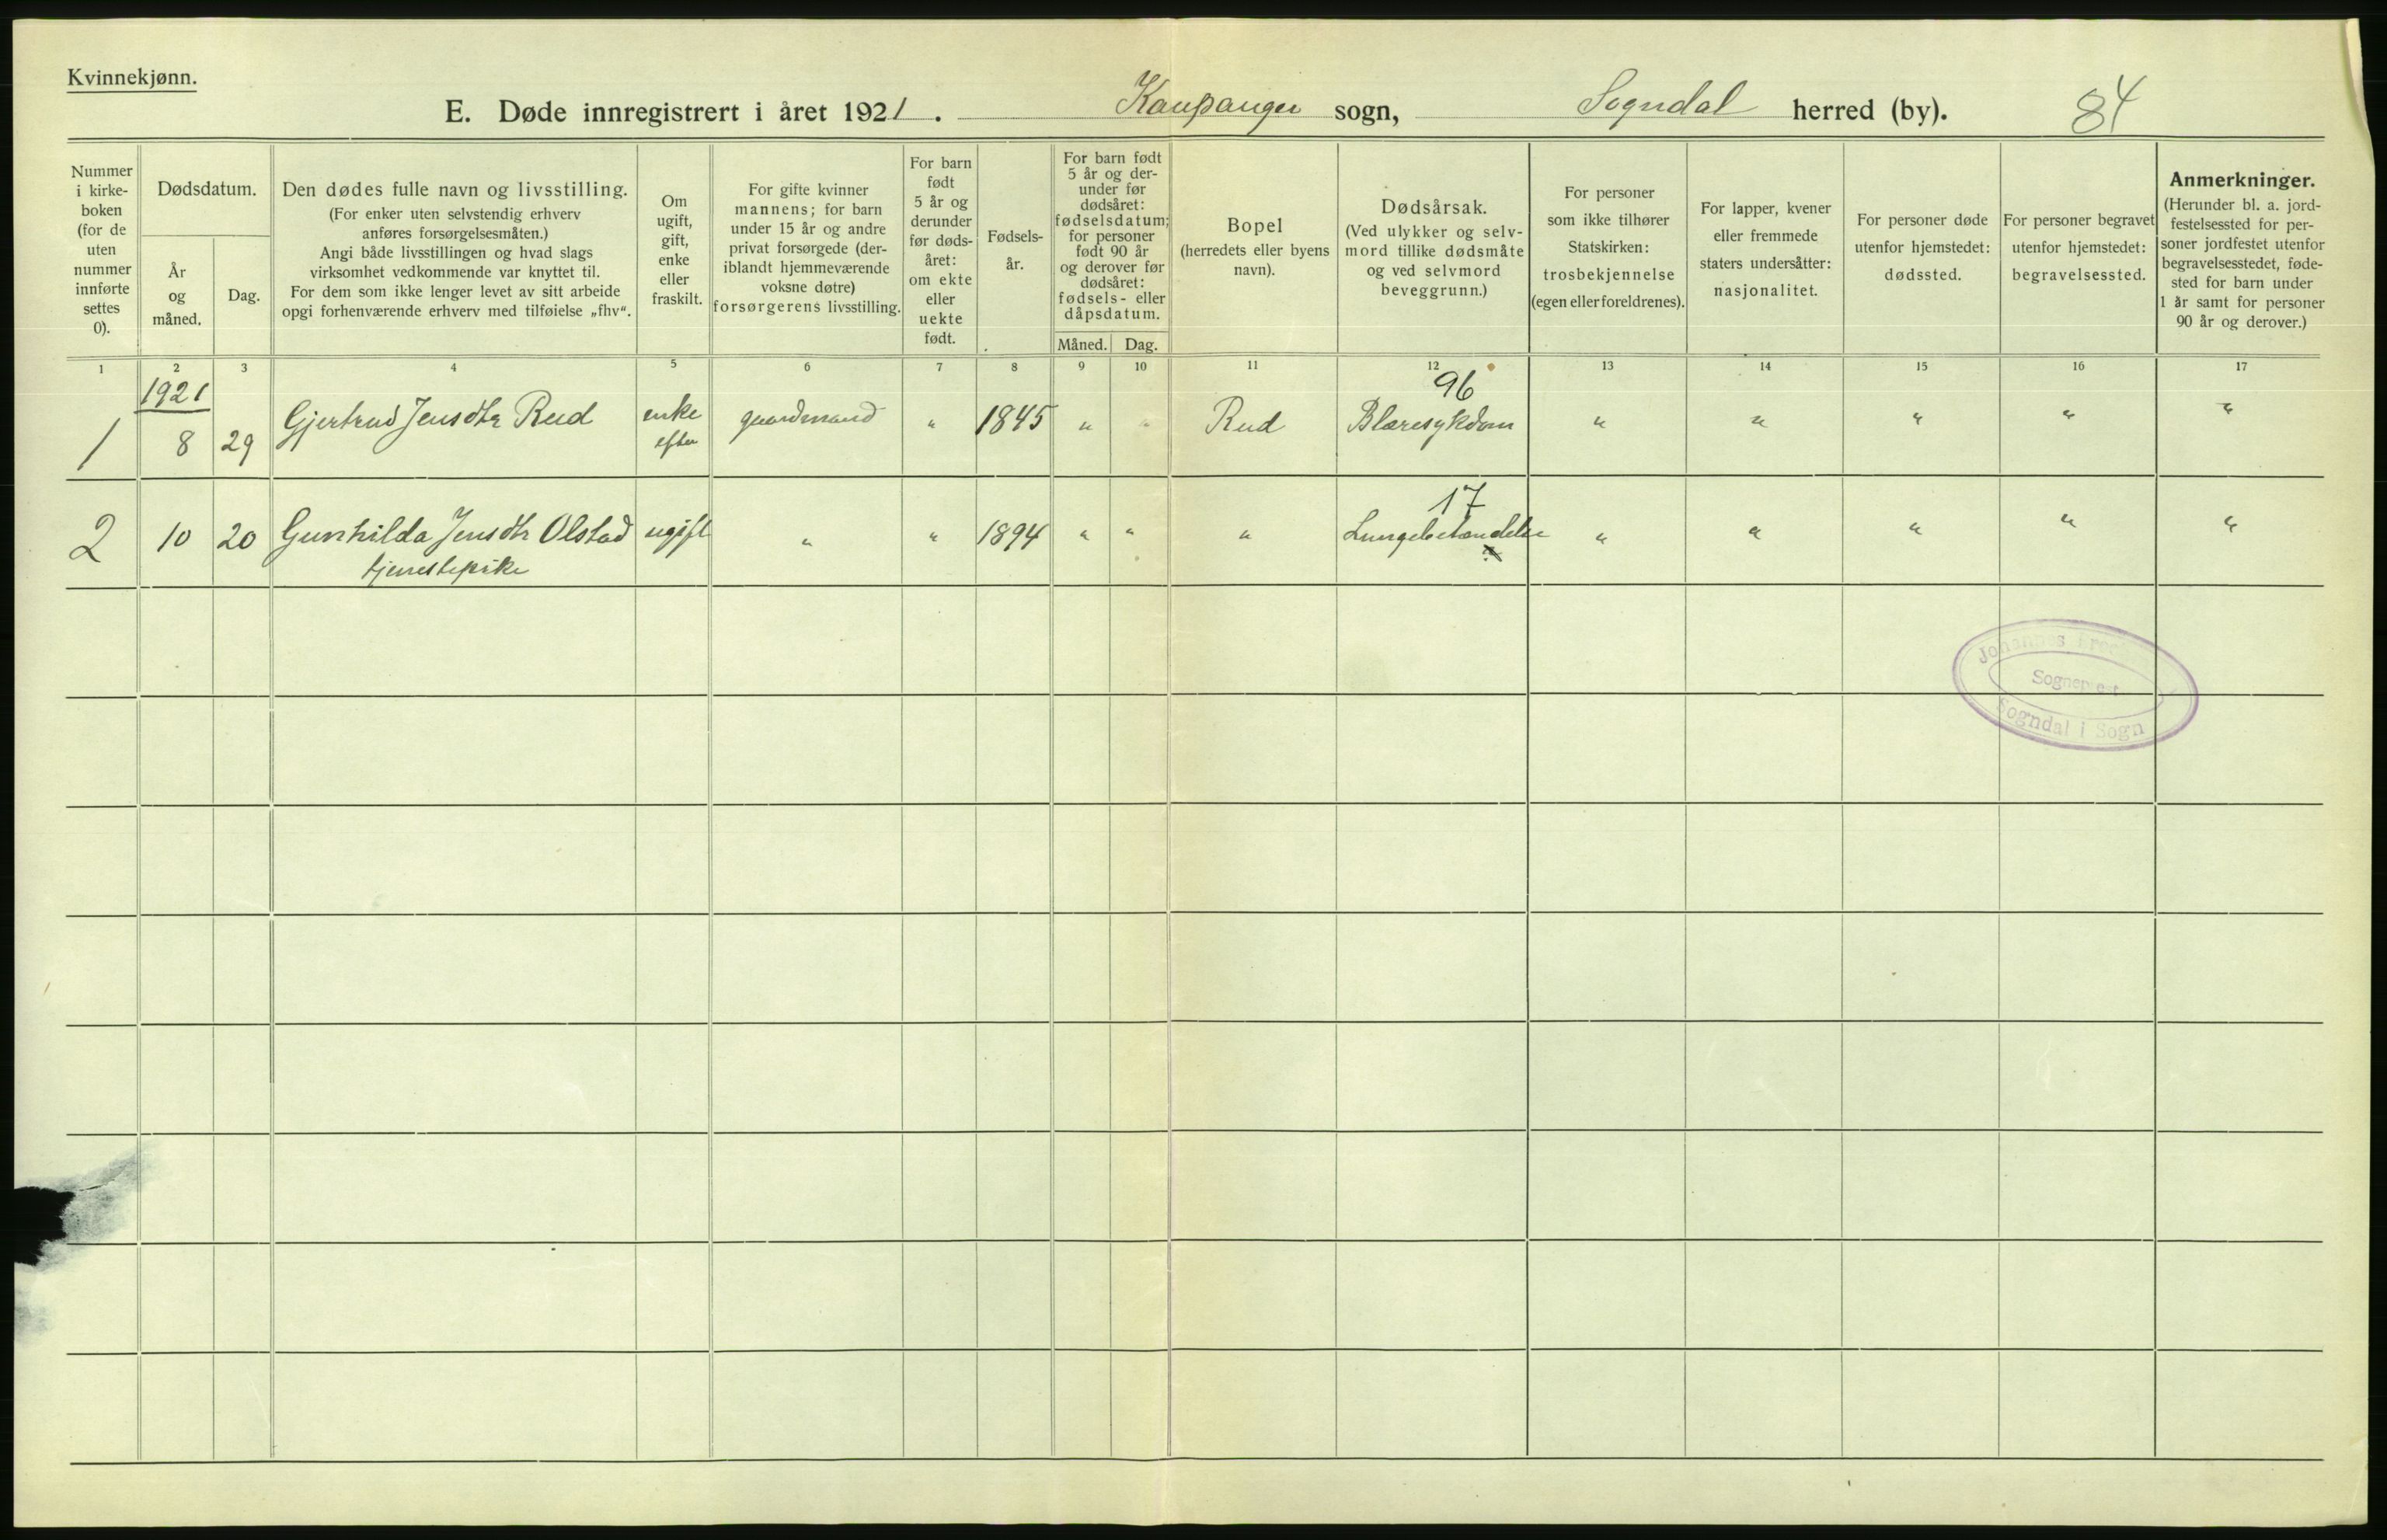 Kvinnekjønn.
E. Døde innregistrert i året 1921. Kaupanger sogn, Sogndal herred (by). 84
Nummer
i kirke-
boken
(for de
uten
nummer
innførte
settes
0).
Dødsdatum.
År
og
måned.
Dag.
Den dødes fulle navn og livsstilling.
(For enker uten selvstendig erhverv
anføres forsørgelsesmåten.)
Angi både livsstillingen og hvad slags
virksomhet vedkommende var knyttet til.
For dem som ikke lenger levet av sitt arbeide
opgi forhenværende erhverv med tilføielse „fhv“.
Om
ugift,
gift,
enke
eller
fraskilt.
For gifte kvinner
mannens; for barn
under 15 år og andre
privat forsørgede (der-
iblandt hjemmeværende
voksne døtre)
forsørgerens livsstilling.
For barn
født
5 år og
derunder
før døds-
året:
om ekte
eller
uekte
født.
Fødsels-
år.
For barn født
5 år og der-
under før
dødsåret:
fødselsdatum;
for personer
født 90 år
og derover før
dødsåret:
fødsels- eller
dåpsdatum.
Måned. Dag.
Bopel
(herredets eller byens
navn).
Dødsårsak.
(Ved ulykker og selv-
mord tillike dødsmåte
og ved selvmord
beveggrunn.)
For personer
som ikke tilhører
Statskirken:
trosbekjennelse
(egen eller foreldrenes).
For lapper, kvener
eller fremmede
staters undersåtter:
nasjonalitet.
For personer døde
utenfor hjemstedet:
dødssted.
For personer begravet
utenfor hjemstedet:
begravelsessted.
Anmerkninger.
(Herunder bl. a. jord-
festelsessted for per-
soner jordfestet utenfor
begravelsesstedet, føde-
sted for barn under
1 år samt for personer
90 år og derover.)
1 2 3 4 5 6 7 8 9 10 11 12 13 14 15 16 17
1921 96
1 8 29 Gjertrud Jensdtr Rud enke gaardmand " 1845 " " Rud Blæresykdom " " " " "
efter
17
2 10 20 Gunhilda Jensdtr Olstad ugift " " 1894 " " " Lungebetændelse " " " " "
tjenestepike
Johannes
Sogneprest
Sogndal i Sogn